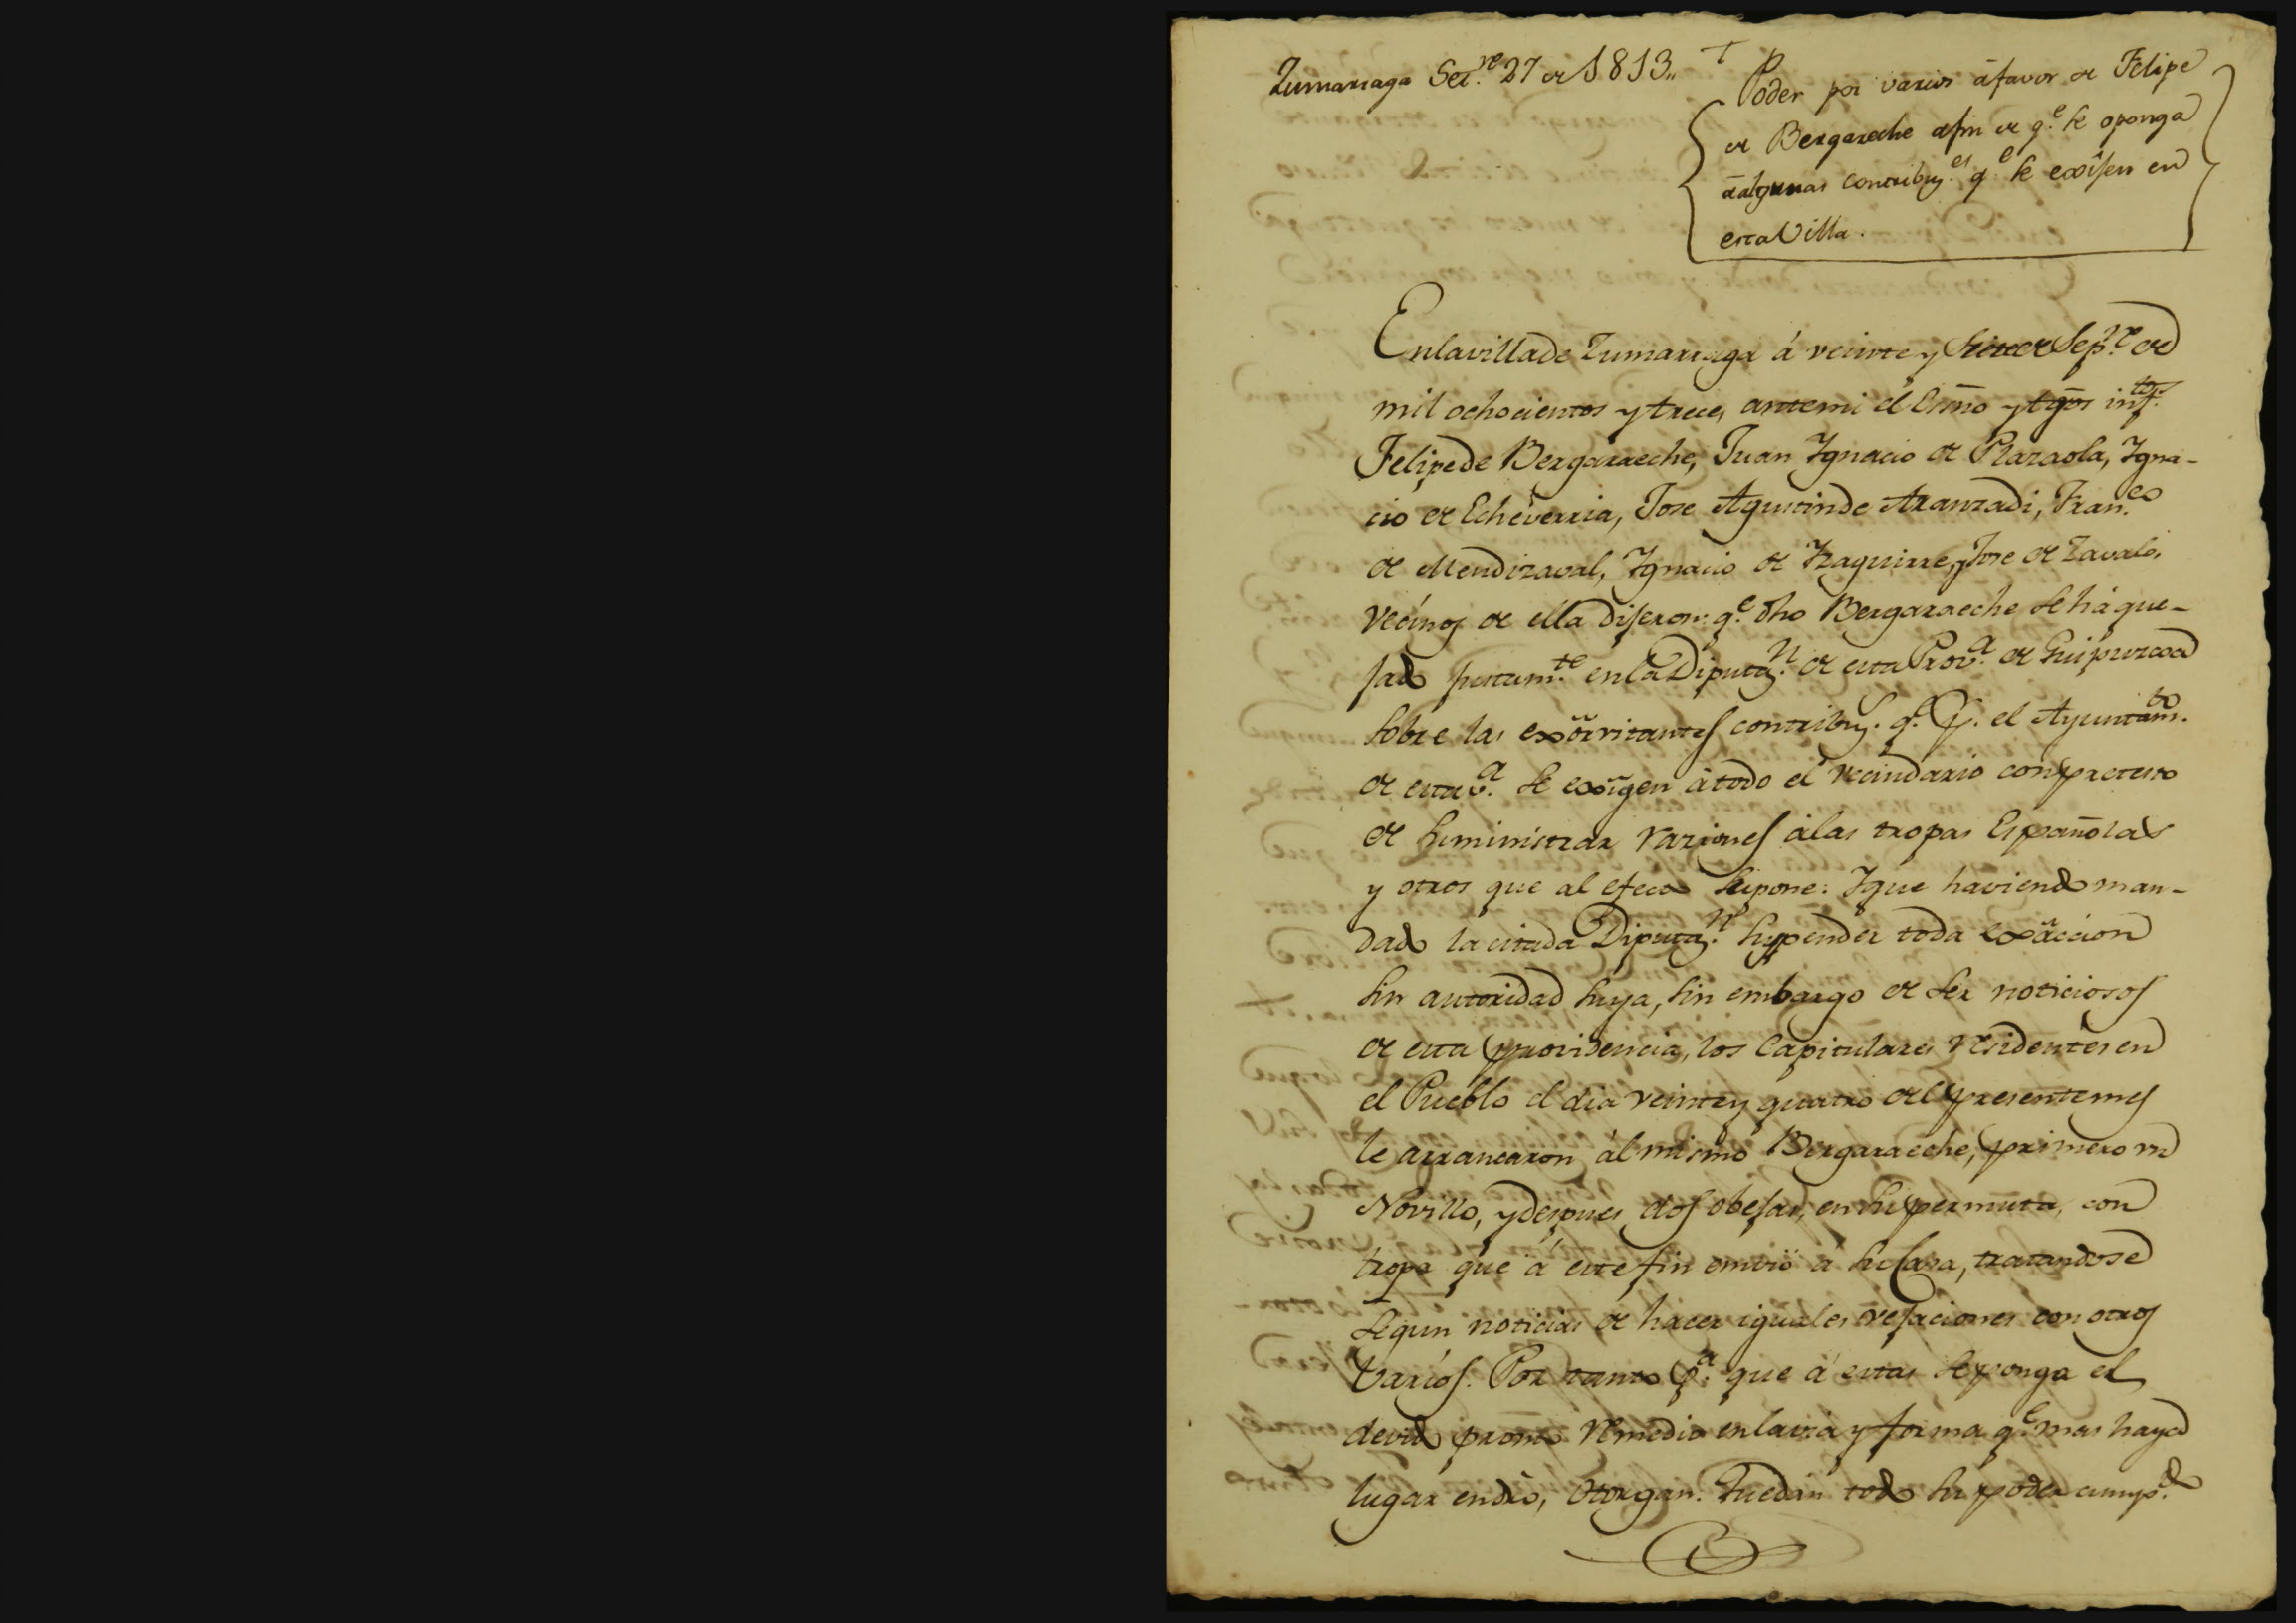 Zumarraga Set.re 27 de 1813,,
Poder por varios á favor de Felipe
de Bergareche afin de q.e se oponga
á algunas contribuy.es q.e se exijen en
esta Villa.
En la villa de Zumarraga á veinte y siete de Sep.re de
mil ochocientos y trece, ante mi el Essno y tgos inf.tos
Felipe de Bergaraeche, Juan Ygnacio de Plazaola, Ygna-
cio de Echeverria, Jose Agustin de Aranzadi, Fran.co
de Mendizaval, Ygnacio de Yzaguirre, y Jose de Zavalo,
vecinos de ella dijeron: q.e dho Bergaraeche se há que-
jado justam.te en la Diputaz.n de esta Prov.a de Guipuzcoa
sobre las exôrvitantes contribuz.s q.e p.r el Ayuntam.to
de esta v.a se exîgen á todo el vecindario con pretesto
de suministrar raziones á las tropas Españolas
y otros que al efecto supone: Y que haviendo man-
dado la citada Diputaz.n suspender toda exâccion
sin autoridad suya, sin embargo de ser noticiosos
de esta providencia, los Capitulares residentes en
el Pueblo el dia veinte y quatro del presente mes
le arrancaron ál mismo Bergaraeche, primero un
Novillo, y despues dos obejas, en su permuta, con
tropa que á este fin embió á su Casa, tratandose
segun noticias de hacer iguales vejaciones con otros
varios. Por tanto p.a que á estas se ponga el
devido pronto remedio en la via y forma q.e mas haya
lugar en dro, Otorgan. Que dan todo su poder cump.do